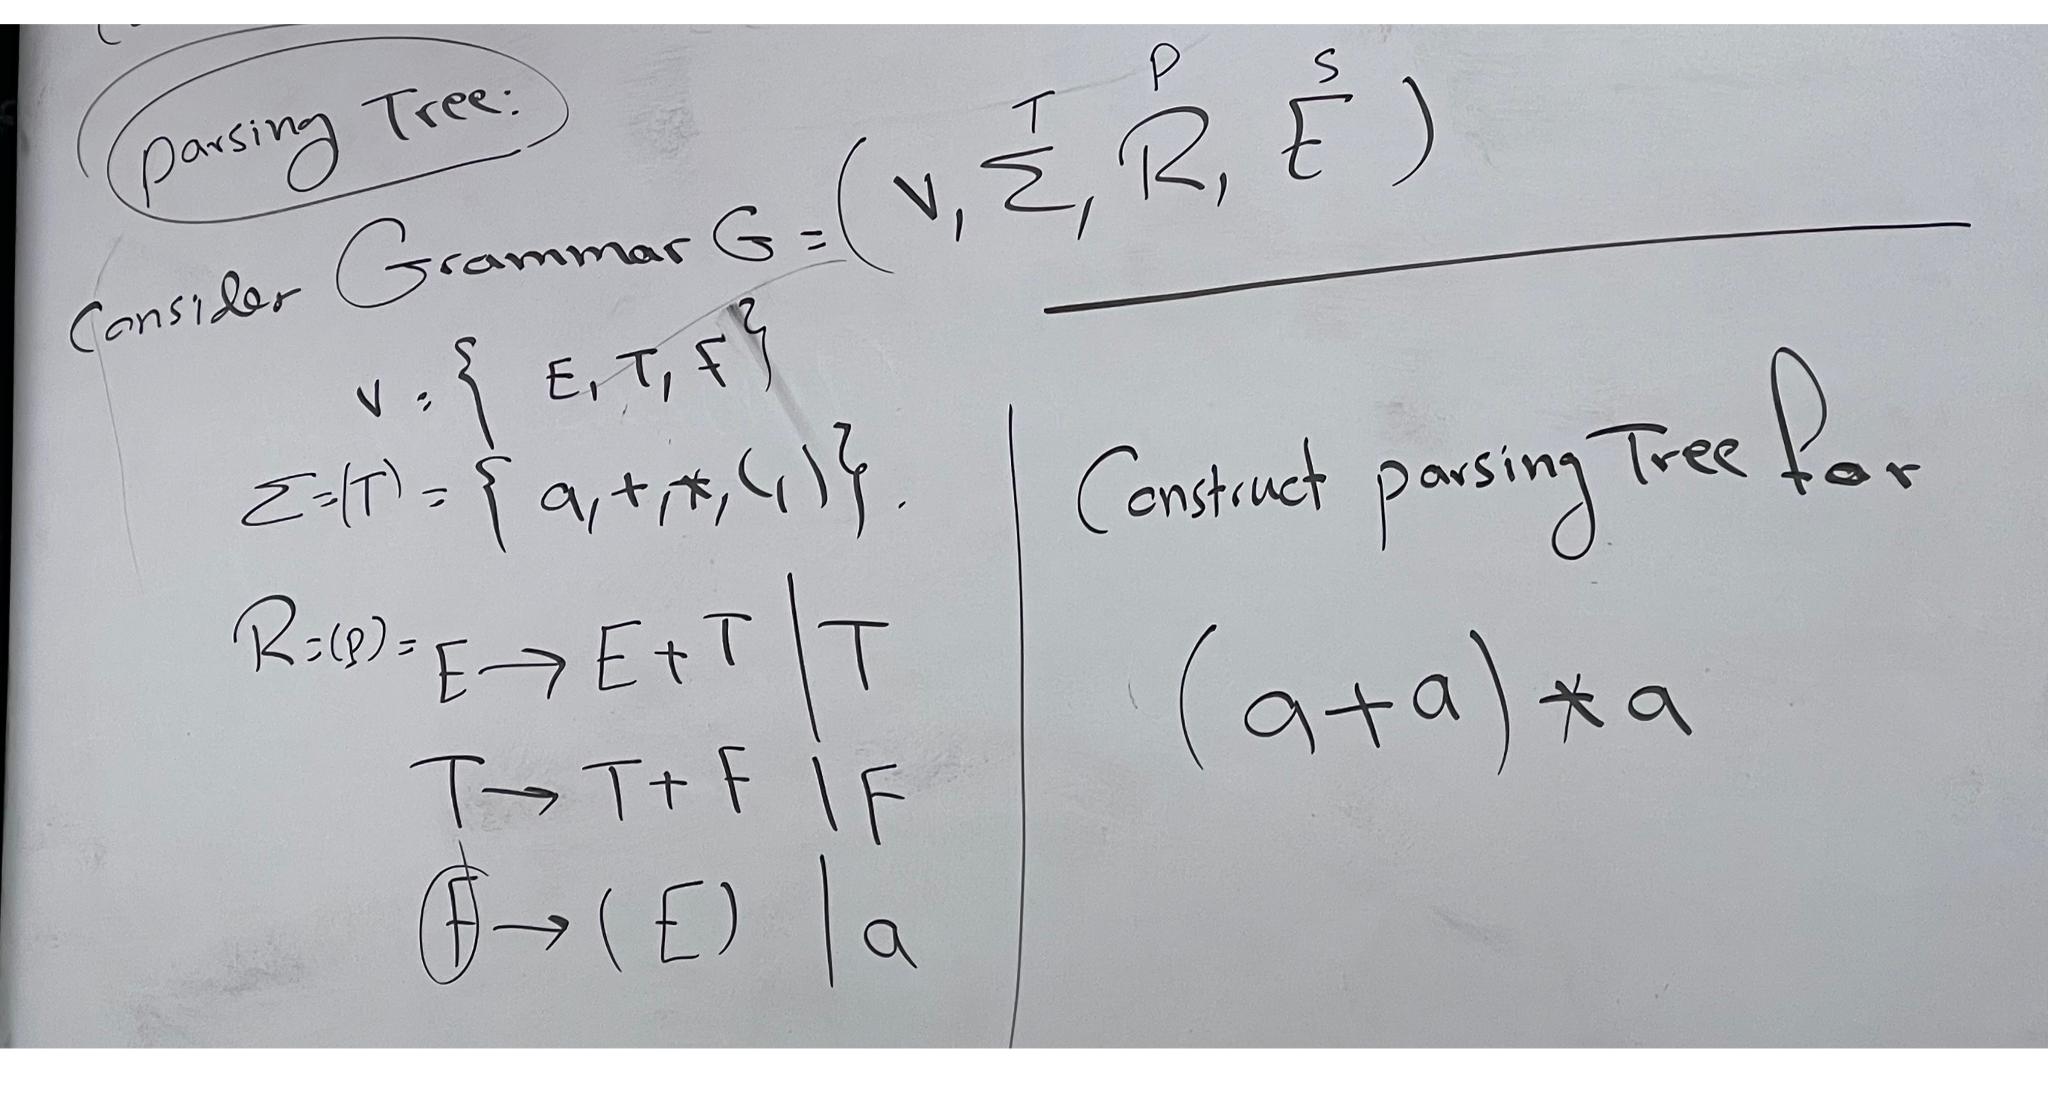 Parsing Tree:
Consider Grammar G = (V, Σ, R, E)
T P S
V = { E, T, F }
Σ = (T) = { a, +, *, (, ) }.
R = (P) = E → E + T | T
T → T + F | F
F → (E) | a
Construct parsing Tree for
(a+a) * a